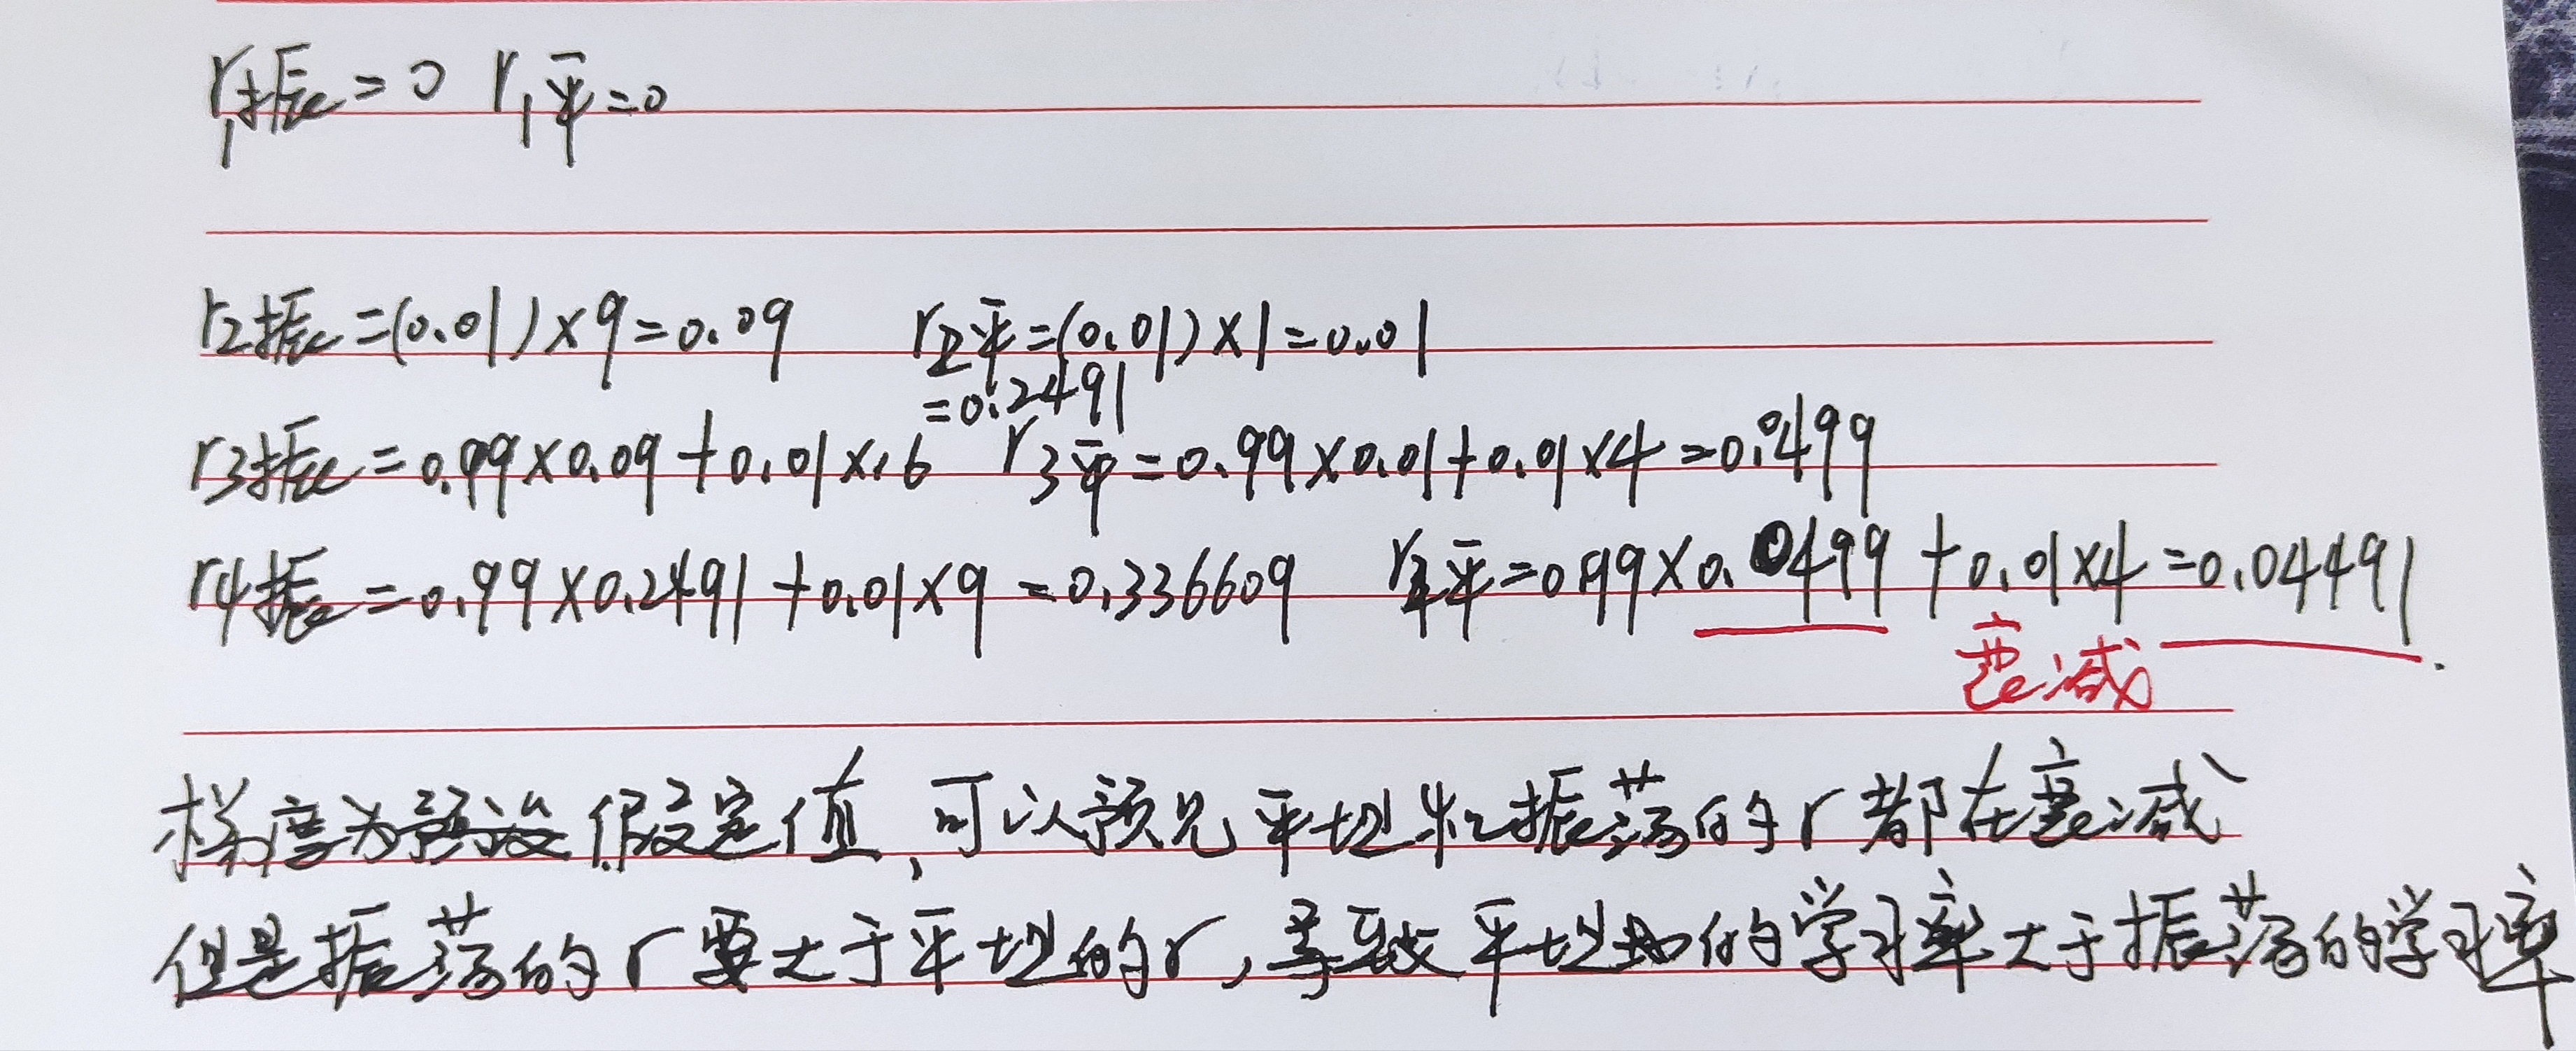 r₁振=0 r₁平=0
r2振=(0.01)×9=0.09 r2平=(0.01)×1=0.01
=0.2491
r3振=0.99×0.09+0.01×16 r3平=0.99×0.01+0.01×4=0.0499
r4振=0.99×0.2491+0.01×9=0.336609 r4平=0.99×0.0499+0.01×4=0.04491
衰减
梯度为假定值,可以预见平坦和振荡的r都在衰减
但是振荡的r要大于平坦的r,导致平坦的学习率大于振荡的学习率